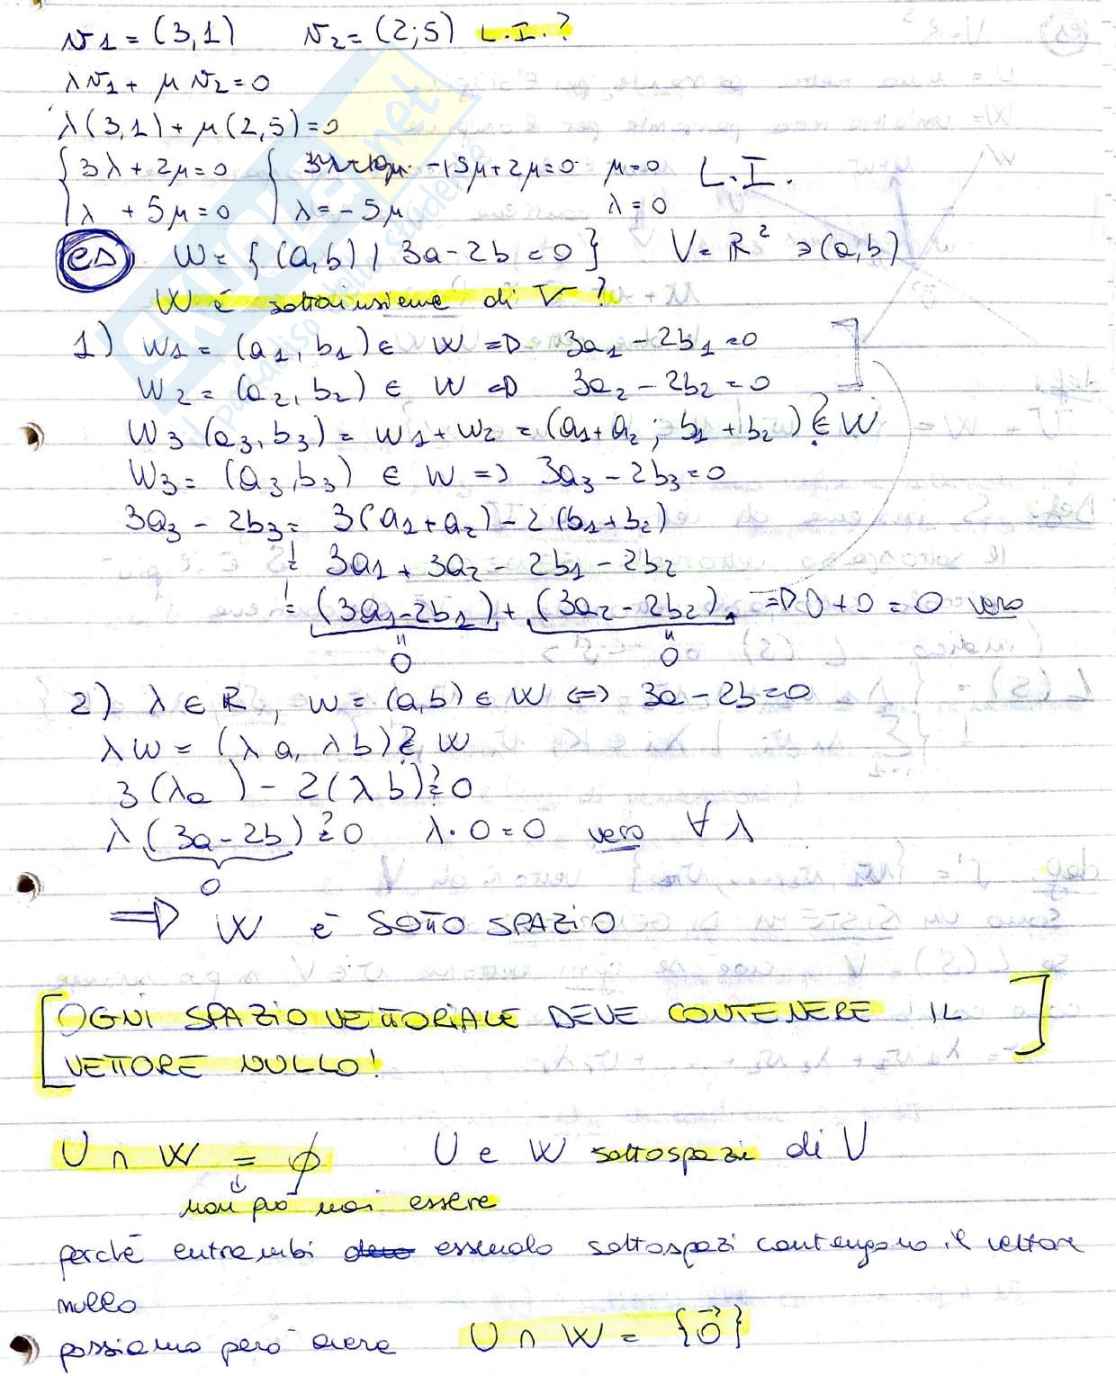 v1 = (3,1)   v2 = (2;5)  L.I.?
λv1 + μv2 = 0
λ(3,1) + μ(2,5) = 0
{ 3λ + 2μ = 0   { -15μ + 2μ = 0   μ = 0   L.I.
{ λ + 5μ = 0   { λ = -5μ   λ = 0
es   W = { (a,b) / 3a - 2b = 0 }   V = ℝ² ∋ (a,b)
W è sottoinsieme di V ?
1) W1 = (a1, b1) ∈ W ⇒ 3a1 - 2b1 = 0
W2 = (a2, b2) ∈ W ⇒ 3a2 - 2b2 = 0
W3 (a3, b3) = W1 + W2 = (a1 + a2 ; b1 + b2) ∈? W
W3 = (a3, b3) ∈ W => 3a3 - 2b3 = 0
3a3 - 2b3 = 3(a1 + a2) - 2(b1 + b2)
= 3a1 + 3a2 - 2b1 - 2b2
= (3a1 - 2b1) + (3a2 - 2b2) ⇒ 0 + 0 = 0 vero
0   0
2) λ ∈ ℝ, W = (a,b) ∈ W <=> 3a - 2b = 0
λW = (λa, λb) ∈? W
3(λa) - 2(λb) =? 0
λ(3a - 2b) =? 0   λ·0 = 0 vero ∀λ
0
⇒ W è SOTTO SPAZIO
[OGNI SPAZIO VETTORIALE DEVE CONTENERE IL
VETTORE NULLO!]
U ∩ W = ∅   U e W sottospazi di V
non può mai essere
perché entrambi essendo sottospazi contengono il vettore
nullo
possiamo però avere   U ∩ W = {0⃗}